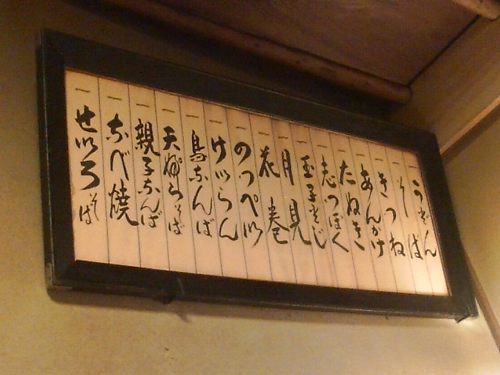 一 うどん
一 そば
一 きつね
一 あんかけ
一 たぬき
一 志っぽく
一 玉子とじ
一 月見
一 花巻
一 のっぺい
一 けいらん
一 鳥なんば
一 天ぷらそば
一 親子なんば
一 なべ焼
一 せいろそば